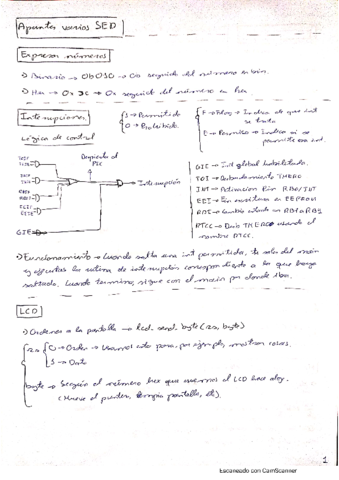 Apuntes varios SED
Expresar números
→ Binario → 0b010 → 0b seguido del número en bin.
→ Hex → 0x3C → 0x seguido del número en hex
Interrupciones
1 → Permitido
0 → Prohibido
F → Flag → Indica de que int se trata
E → Permiso → Indica si se permite esa int.
Lógica de control
Dentro del PIC
→ Interrupción
GIE
GIE → Int global habilitada.
T0I → Desbordamiento TMER0
INT → Activación Pin RB0/INT
EEI → Fin escritura en EEPROM
RBI → Cambio estado en RB4 o RB5
→ Funcionamiento → Cuando salta una int permitida, te sales del main
y ejecutas la rutina de interrupción correspondiente a la que haya
saltado. Cuando termina, sigue con el main por donde iba.
LCD
→ Ordenes a la pantalla → lcd_send_byte(rs, byte)
rs
0 → Orden → Usamos esto para, por ejemplo, mostrar cosas.
1 → Dato
byte → Según el número hex que usemos el LCD hace algo.
(Mueve el puntero, limpia pantalla, etc).
1
Escaneado con CamScanner